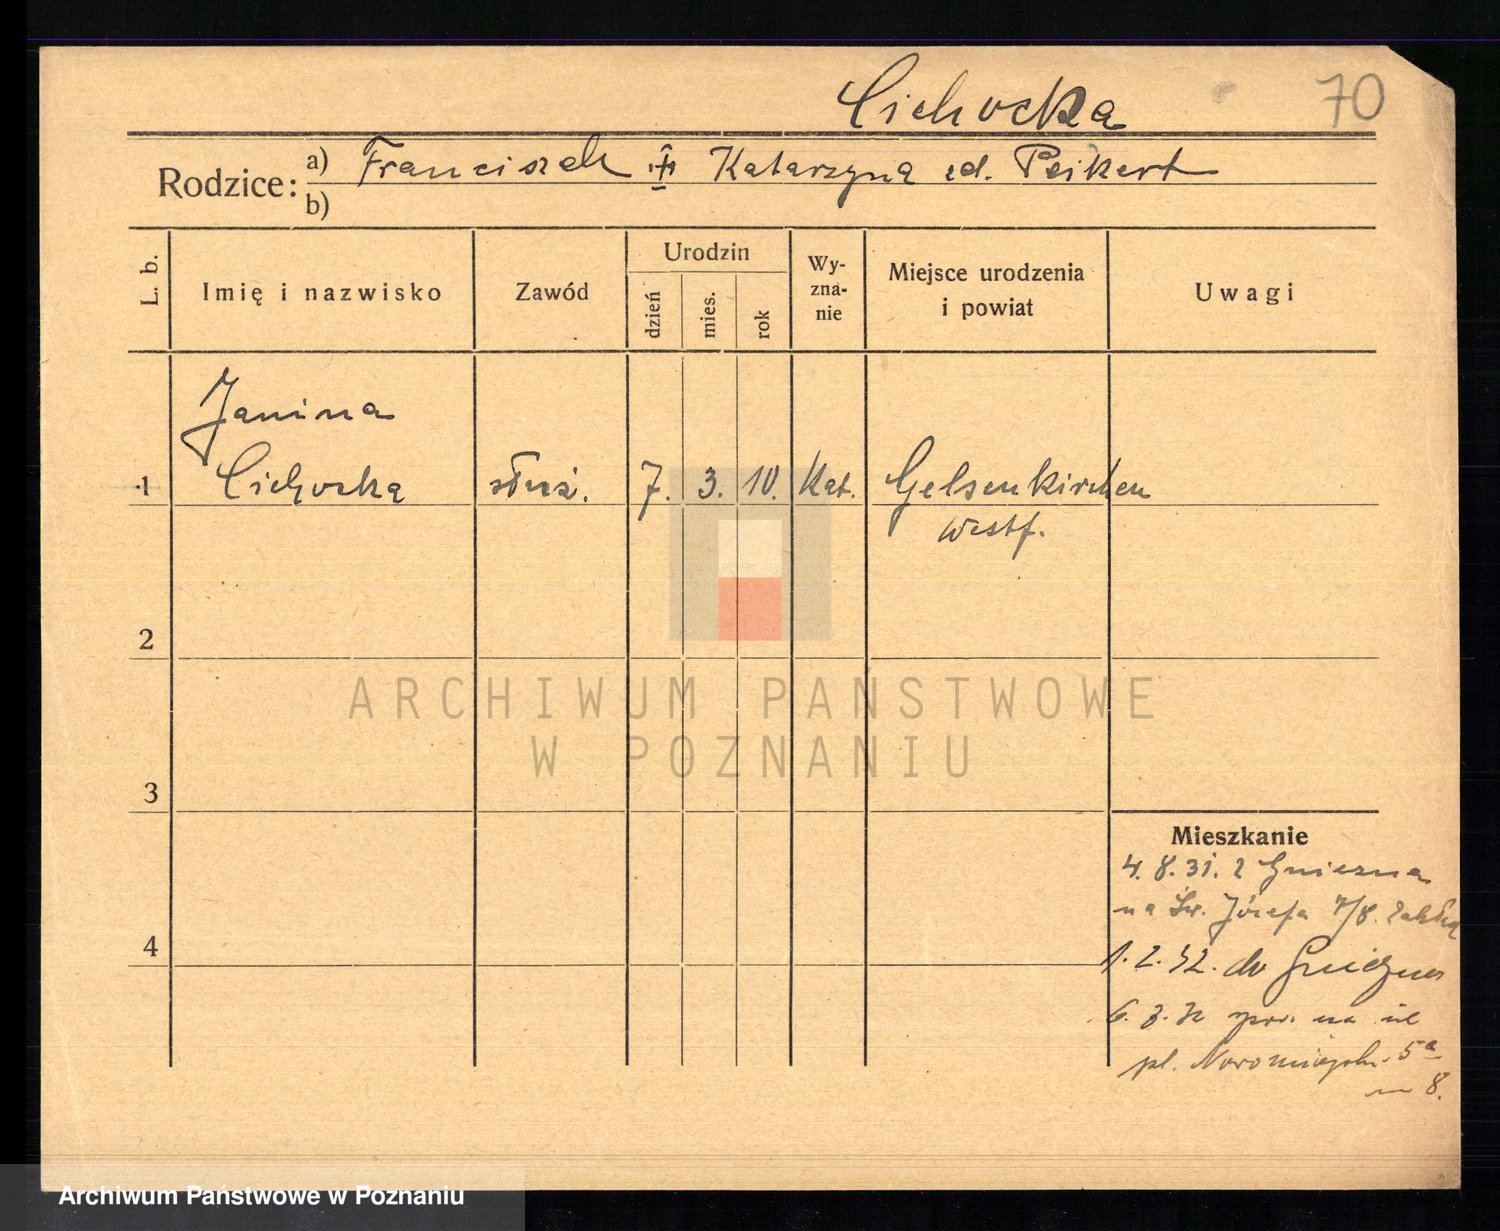 Cichocka
70
Rodzice:
a) Franciszek i Katarzyna zd. Peikert
b)
L. b.
Imię i nazwisko
Zawód
Urodzin
dzień
mies.
rok
Wy-
zna-
nie
Miejsce urodzenia
i powiat
Uwagi
Janina
1 Cichocka służ. 7. 3. 10. Kat. Gelsenkirchen
Westf.
2
ARCHIWUM PAŃSTWOWE
W POZNANIU
3
Mieszkanie
4. 8. 31. z Gniezna
na Św. Józefa 7/8.
4
1. 2. 32. do Gniezna
6. 3. 32 na
pl. Nowomiejski 5a
m 8.
Archiwum Państwowe w Poznaniu